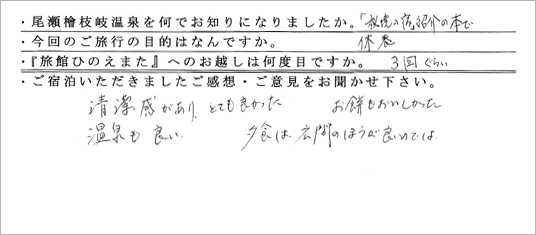 ・尾瀬檜枝岐温泉を何でお知りになりましたか。「秘湯の宿」紹介の本で
・今回のご旅行の目的はなんですか。 休養
・『旅館ひのえまた』へのお越しは何度目ですか。 3回ぐらい
・ご宿泊いただきましたご感想・ご意見をお聞かせ下さい。
清潔感があり、とても良かった お餅もおいしかった
温泉も良い。 夕食は、広間のほうが良いのでは